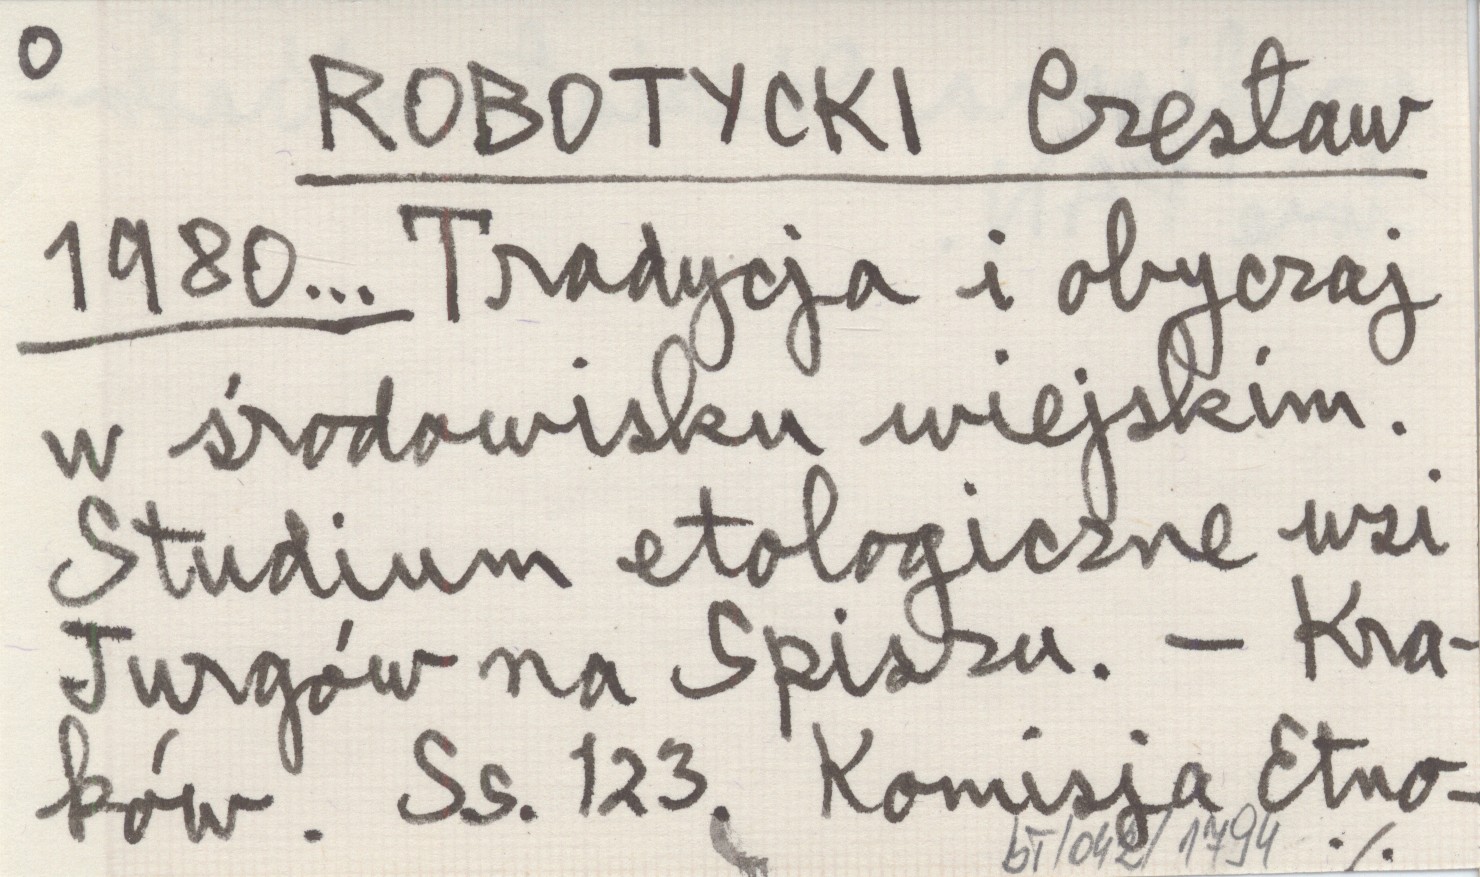 O
ROBOTYCKI Czesław
1980... Tradycja i obyczaj
w środowisku wiejskim.
Studium etologiczne wsi
Jurgów na Spiszu. – Kra-
ków. Ss. 123. Komisja Etno-
bł/042/1794 ./.